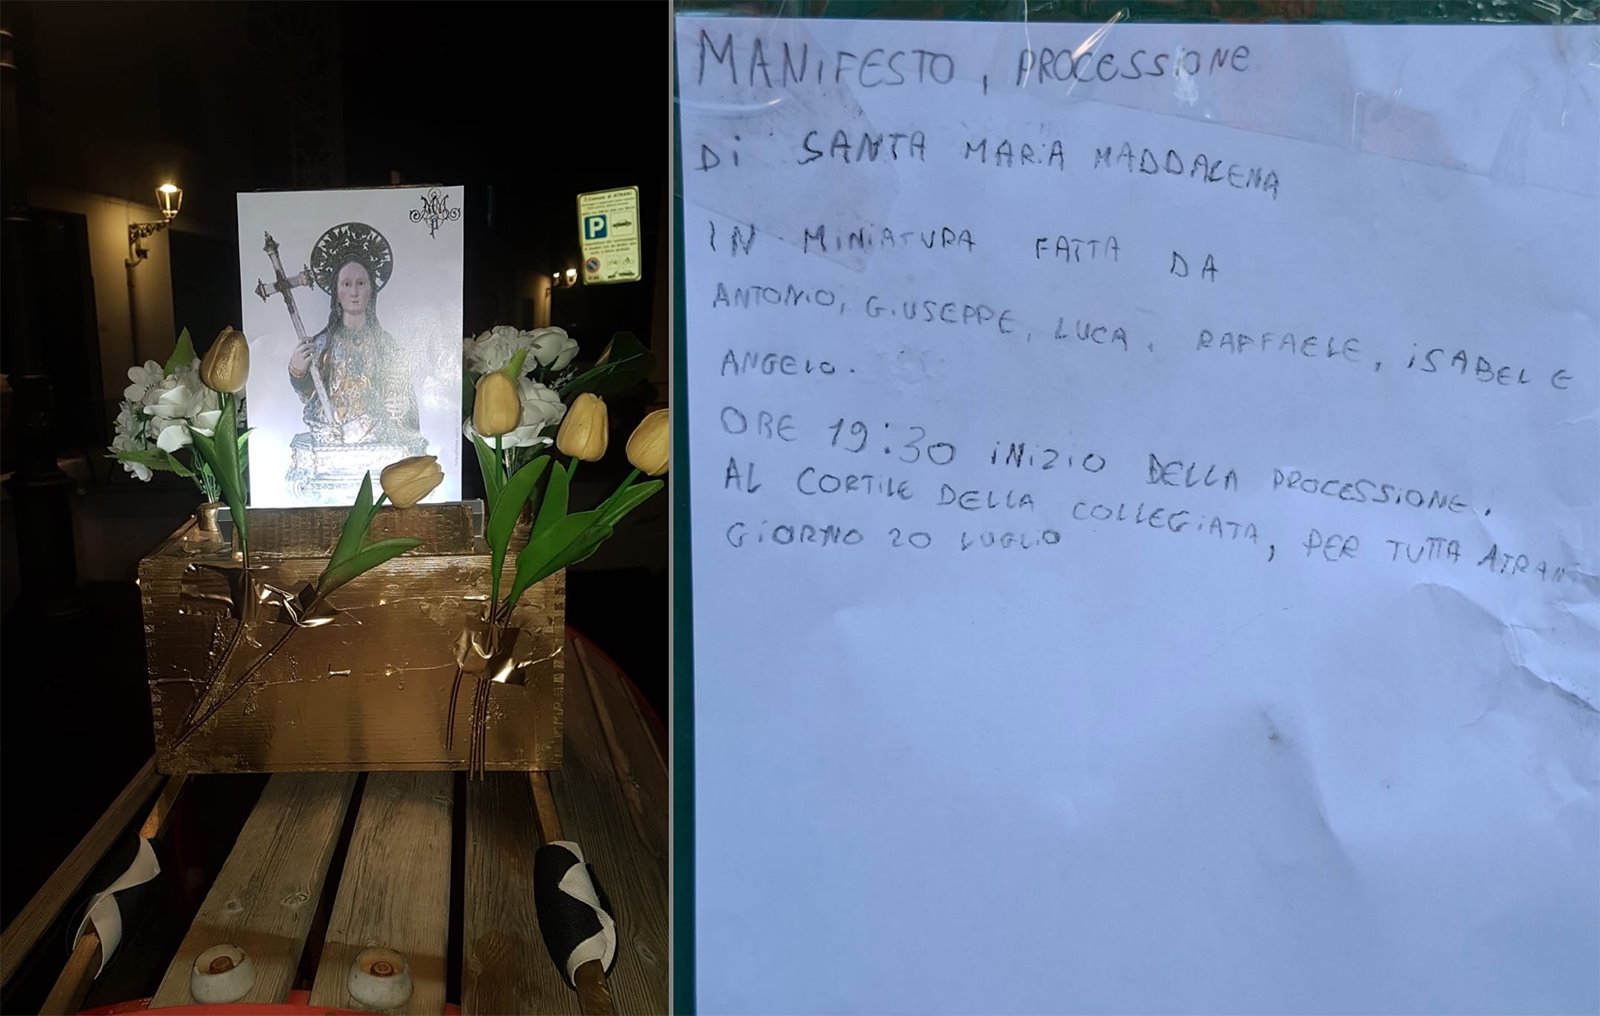 Comune di ATRANI
P
MANIFESTO, PROCESSIONE
Di SANTA MARiA MADDALENA
IN MiNiATURA FATTA DA
ANTONIO, GiUSEPPE, LUCA, RAFFAELE, iSABEL E
ANGELO.
ORE 19:30 iNiZiO DELLA PROCESSiONE.
AL CORTILE DELLA COLLEGiATA, PER TUTTA ATRANi
GiORNO 20 LUGLiO